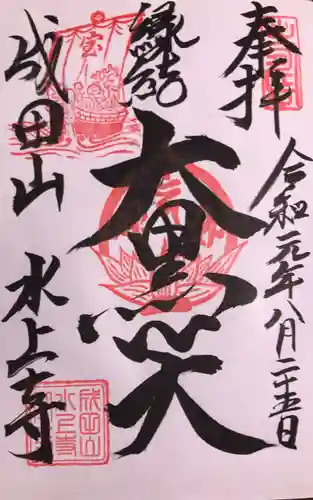 奉拝
令和元年八月二十五日
大黒天
縁結
宝
成田山
水上寺
成田山
水上寺